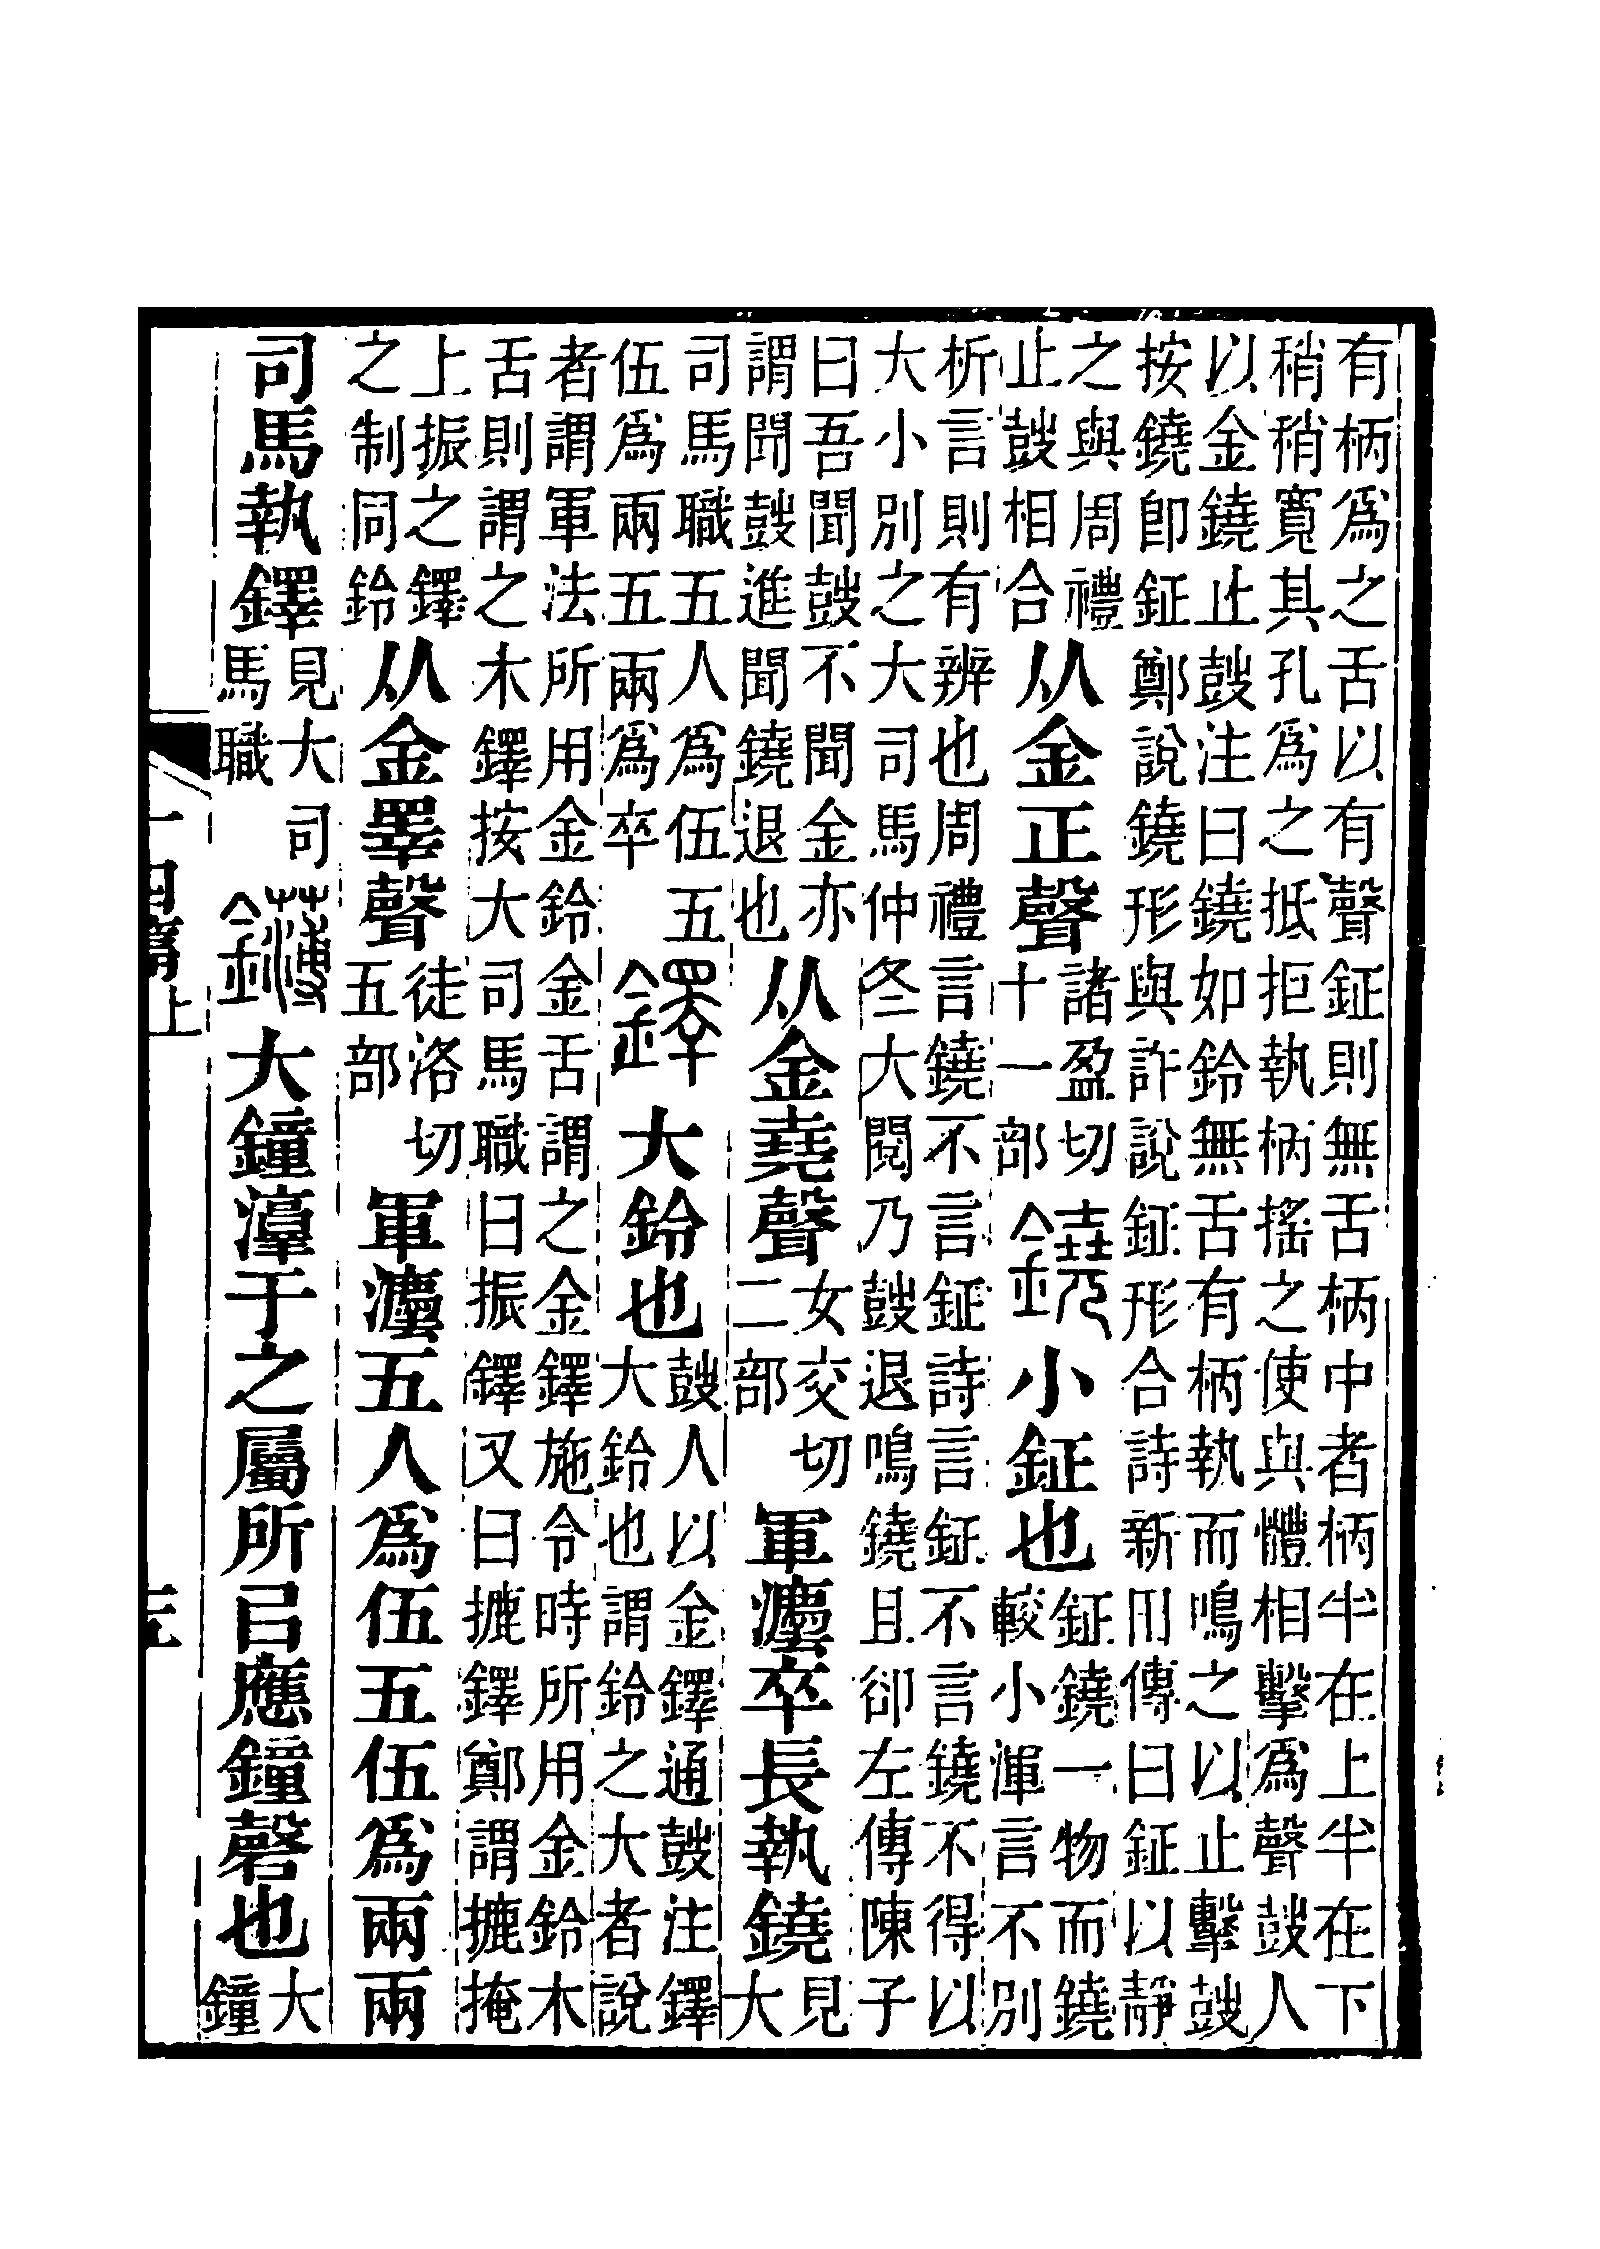 有柄爲之舌以有聲鉦則無舌柄中者柄半在上半在下
稍稍寬其孔爲之抵拒執柄搖之使與體相擊爲聲鼓人
以金鐃止鼓注曰鐃如鈴無舌有柄執而鳴之以止擊鼓
按鐃卽鉦鄭說鐃形與許說鉦形合詩新田傳曰鉦以靜
之與周禮
止鼓相合
从金正聲
諸盈切
十一部
鐃小鉦也
鉦鐃一物而鐃
較小渾言不別
析言則有辨也周禮言鐃不言鉦詩言鉦不言鐃不得以
大小別之大司馬仲冬大閱乃鼓退鳴鐃且卻左傳陳子
曰吾聞鼓不聞金亦
謂聞鼓進聞鐃退也
从金堯聲
女交切
二部
軍灋卒長執鐃
見
大
司馬職五人爲伍五
伍爲兩五兩爲卒
鐸大鈴也
鼓人以金鐸通鼓注鐸
大鈴也謂鈴之大者說
者謂軍法所用金鈴金舌謂之金鐸施令時所用金鈴木
舌則謂之木鐸按大司馬職曰振鐸又曰摝鐸鄭謂摝掩
上振之鐸
之制同鈴
从金睪聲
徒洛切
五部
軍灋五人爲伍五伍爲兩兩
司馬執鐸
見大司
馬職
鎛大鐘𣹬于之屬所㠯應鐘磬也
大
鐘
十四篇上